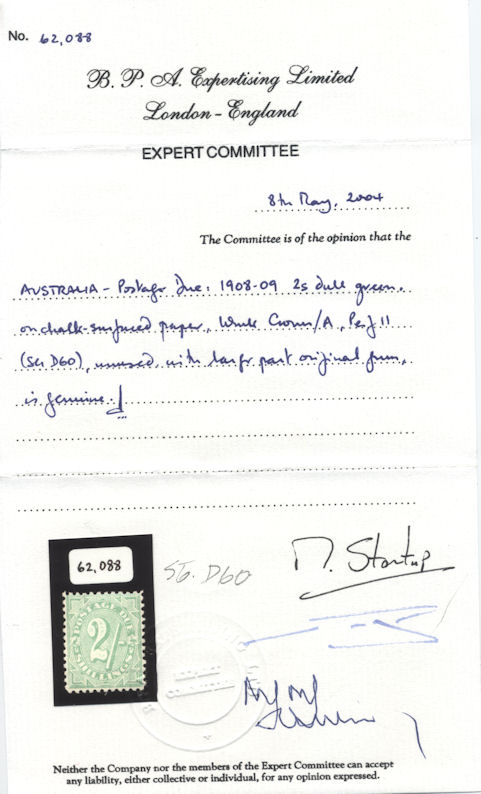 No. 62,088
B. P. A. Expertising Limited
London - England
EXPERT COMMITTEE
8th May, 2004
The Committee is of the opinion that the
AUSTRALIA - Postage Due: 1908-09 2s dull green,
on chalk-surfaced paper, Wmk Crown/A, Perf 11
(SG D60), unused with large part original gum,
is genuine.
62,088
SG. D60
M. Startup
POSTAGE DUE
2/
SHILLINGS
Neither the Company nor the members of the Expert Committee can accept
any liability, either collective or individual, for any opinion expressed.